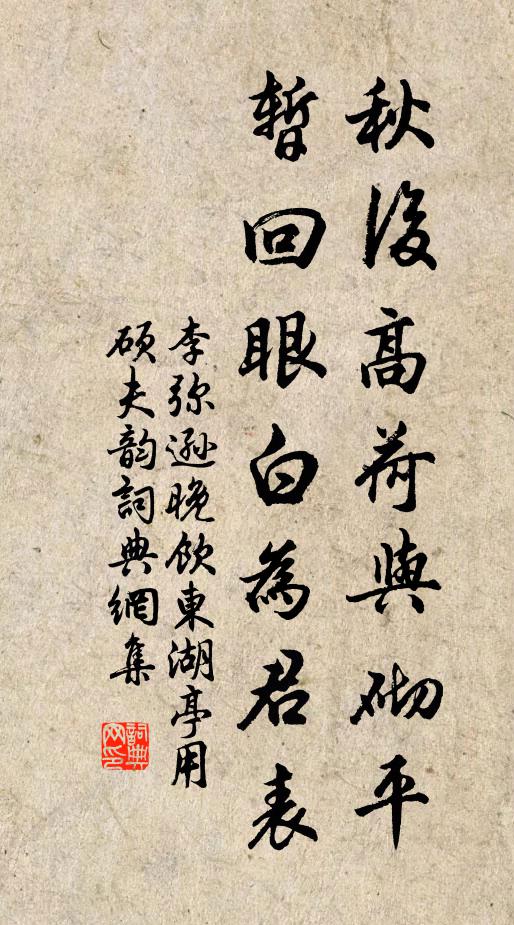 秋後高荷與砌平
暫回眼白為君表
李弥遜晚飲東湖亭用
碩夫韵詞典網集
詞典網印